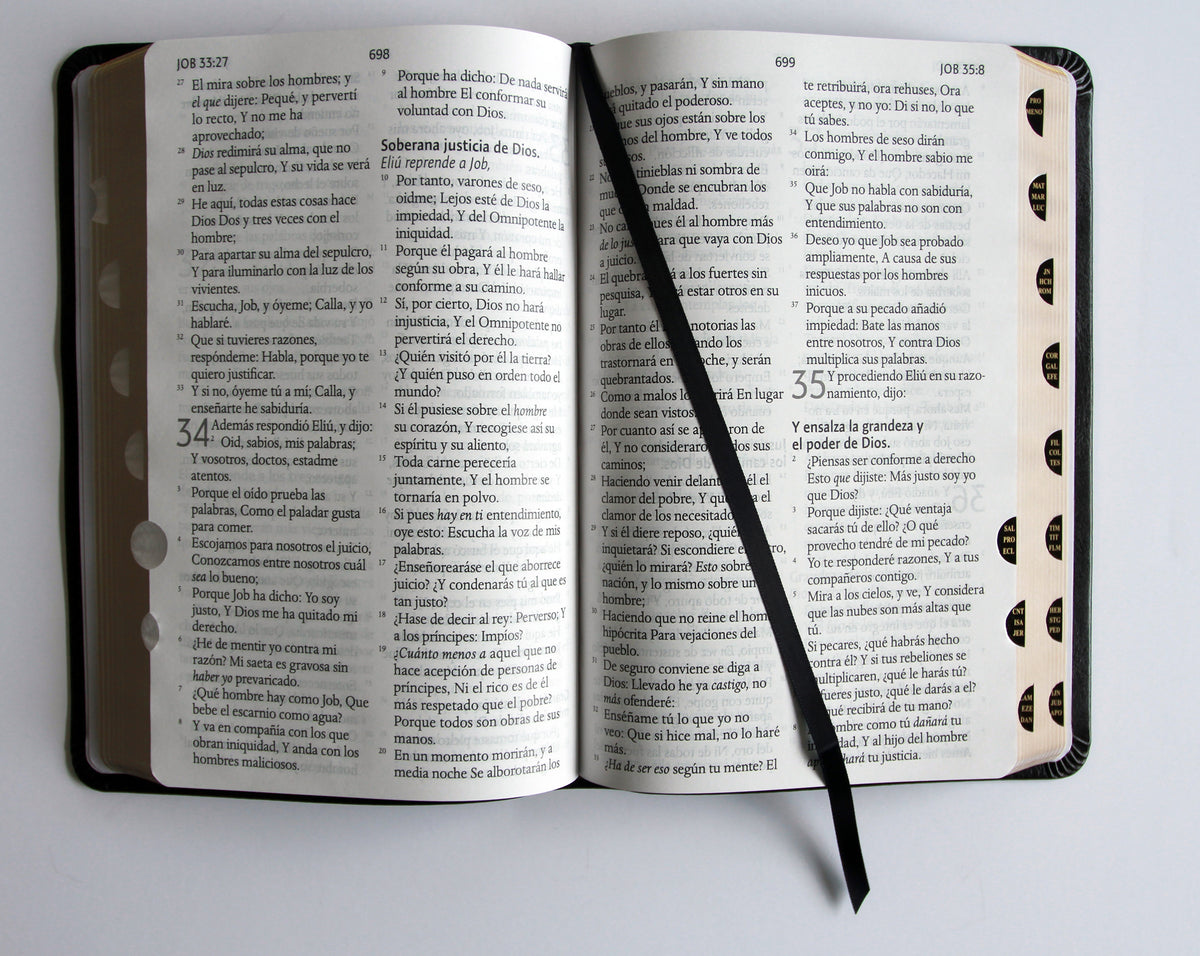 JOB 33:27
698
27 El mira sobre los hombres; y
el que dijere: Pequé, y pervertí
lo recto, Y no me ha
aprovechado;
28 Dios redimirá su alma, que no
pase al sepulcro, Y su vida se verá
en luz.
29 He aquí, todas estas cosas hace
Dios Dos y tres veces con el
hombre;
30 Para apartar su alma del sepulcro,
Y para iluminarlo con la luz de los
vivientes.
31 Escucha, Job, y óyeme; Calla, y yo
hablaré.
32 Que si tuvieres razones,
respóndeme: Habla, porque yo te
quiero justificar.
33 Y si no, óyeme tú a mí; Calla, y
enseñarte he sabiduría.
34 Además respondió Eliú, y dijo:
2 Oid, sabios, mis palabras;
Y vosotros, doctos, estadme
atentos.
3 Porque el oído prueba las
palabras, Como el paladar gusta
para comer.
4 Escojamos para nosotros el juicio,
Conozcamos entre nosotros cuál
sea lo bueno;
5 Porque Job ha dicho: Yo soy
justo, Y Dios me ha quitado mi
derecho.
6 ¿He de mentir yo contra mi
razón? Mi saeta es gravosa sin
haber yo prevaricado.
7 ¿Qué hombre hay como Job, Que
bebe el escarnio como agua?
8 Y va en compañía con los que
obran iniquidad, Y anda con los
hombres maliciosos.
9 Porque ha dicho: De nada servirá
al hombre El conformar su
voluntad con Dios.
Soberana justicia de Dios.
Eliú reprende a Job,
10 Por tanto, varones de seso,
oidme; Lejos esté de Dios la
impiedad, Y del Omnipotente la
iniquidad.
11 Porque él pagará al hombre
según su obra, Y él le hará hallar
conforme a su camino.
12 Sí, por cierto, Dios no hará
injusticia, Y el Omnipotente no
pervertirá el derecho.
13 ¿Quién visitó por él la tierra?
¿Y quién puso en orden todo el
mundo?
14 Si él pusiese sobre el hombre
su corazón, Y recogiese así su
espíritu y su aliento,
15 Toda carne perecería
juntamente, Y el hombre se
tornaría en polvo.
16 Si pues hay en ti entendimiento,
oye esto: Escucha la voz de mis
palabras.
17 ¿Enseñorearáse el que aborrece
juicio? ¿Y condenarás tú al que es
tan justo?
18 ¿Hase de decir al rey: Perverso; Y
a los príncipes: Impíos?
19 ¿Cuánto menos a aquel que no
hace acepción de personas de
príncipes, Ni el rico es de él
más respetado que el pobre?
Porque todos son obras de sus
manos.
20 En un momento morirán, y a
media noche Se alborotarán los
699
JOB 35:8
y pasarán, Y sin mano
quitado el poderoso.
que sus ojos están sobre los
del hombre, Y ve todos
22 tinieblas ni sombra de
Donde se encubran los
que maldad.
23 No él al hombre más
de lo para que vaya con Dios
a juicio.
24 El a los fuertes sin
pesquisa, estar otros en su
lugar.
25 Por tanto él notorias las
obras de ellos, los
trastornará en y serán
quebrantados.
26 Como a malos los En lugar
donde sean vistos
27 Por cuanto así se de
él, Y no consideraron sus
caminos;
28 Haciendo venir delante él el
clamor del pobre, Y que el
clamor de los necesitados
29 Y si él diere reposo, ¿quién
inquietará? Si escondiere el
¿quién lo mirará? Esto sobre
nación, y lo mismo sobre un
hombre;
30 Haciendo que no reine el
hipócrita Para vejaciones del
pueblo.
31 De seguro conviene se diga a
Dios: Llevado he ya castigo, no
más ofenderé:
32 Enséñame tú lo que yo no
veo: Que si hice mal, no lo haré
más.
¿Ha de ser eso según tu mente? El
te retribuirá, ora rehuses, Ora
aceptes, y no yo: Di si no, lo que
tú sabes.
34 Los hombres de seso dirán
conmigo, Y el hombre sabio me
oirá:
35 Que Job no habla con sabiduría,
Y que sus palabras no son con
entendimiento.
36 Deseo yo que Job sea probado
ampliamente, A causa de sus
respuestas por los hombres
inicuos.
37 Porque a su pecado añadió
impiedad: Bate las manos
entre nosotros, Y contra Dios
multiplica sus palabras.
35 Y procediendo Eliú en su razo-
namiento, dijo:
Y ensalza la grandeza y
el poder de Dios.
2 ¿Piensas ser conforme a derecho
Esto que dijiste: Más justo soy yo
que Dios?
3 Porque dijiste: ¿Qué ventaja
sacarás tú de ello? ¿O qué
provecho tendré de mi pecado?
4 Yo te responderé razones, Y a tus
compañeros contigo.
5 Mira a los cielos, y ve, Y considera
que las nubes son más altas que
tú.
Si pecares, ¿qué habrás hecho
contra él? Y si tus rebeliones se
multiplicaren, ¿qué le harás tú?
fueres justo, ¿qué le darás a el?
qué recibirá de tu mano?
8 hombre como tú dañará tu
Y al hijo del hombre
tu justicia.
PRO
MENO
MAT
MAR
LUC
JN
HCH
ROM
COR
GAL
EFE
FIL
COL
TES
SAL
PRO
ECL
TIM
TIT
FLM
CNT
ISA
JER
HEB
STG
PED
LAM
EZE
DAN
JUD
APO